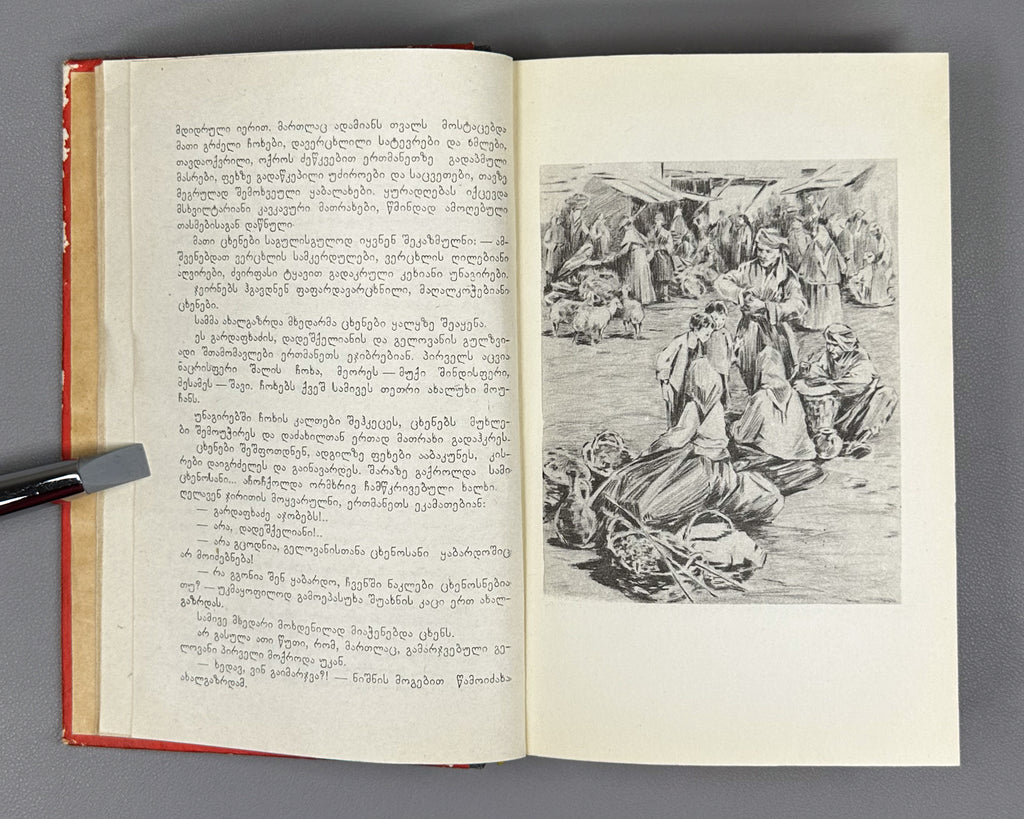 მდიდრული იერით. მართლაც ადამიანს თვალს მოსტაცებდა
მათი გრძელი ჩოხები, დავერცხლილი სატევრები და ხმლები,
თავდაოქვრილი, ოქროს ძეწკვებით ერთმანეთზე გადაბმული
მასრები, ფეხზე გადაწკეპილი უძიროები და საცვეთები, თავზე
მეგრულად შემოხვეული ყაბალახები. ყურადღებას იქცევდა
მსხვილტარიანი კავკავური მათრახები, წმინდად ამოღებული
თასმებისაგან დაწნული
მათი ცხენები საგულისგულოდ იყვნენ შეკაზმულნი: — ამ-
შვენებდათ ვერცხლის სამკერდულები, ვერცხლის ღილებიანი
აღვირები, ძვირფასი ტყავით გადაკრული კეხიანი უნაგირები.
ჯეირნებს ჰგავდნენ ფაფარდავარცხნილი, მაღალკოჭებიანი
ცხენები.
სამმა ახალგაზრდა მხედარმა ცხენები ყალყზე შეაყენა.
ეს გარდაფხაძის, დადეშქელიანის და გელოვანის გულზვი-
ადი შთამომავლები ერთმანეთს ეჯიბრებიან. პირველს აცვია
ნაცრისფერი შალის ჩოხა, მეორეს — მუქი შინდისფერი,
მესამეს — შავი. ჩოხებს ქვეშ სამივეს თეთრი ახალუხი მოუ-
ჩანს.
უნაგირებში ჩოხის კალთები შეჰკეცეს, ცხენებს მუხლე-
ბი შემოუჭირეს და დაძახილთან ერთად მათრახი გადაჰკრეს.
ცხენები შეშფოთდნენ, ადგილზე ფეხები ააბაკუნეს, კის-
რები დაიგრძელეს და გაინავარდეს. შარაზე გაქროლდა სამი
ცხენოსანი... აჩოჩქოლდა ორმხრივ ჩამწკრივებული ხალხი.
ღელავენ ჯირითის მოყვარულნი, ერთმანეთს ეკამათებიან:
— გარდაფხაძე აჯობებს!..
— არა, დადეშქელიანი!..
— არა გცოდნია, გელოვანისთანა ცხენოსანი ყაბარდოშიც
არ მოიძებნება!
— რა გგონია შენ ყაბარდო, ჩვენში ნაკლები ცხენოსნებია
თუ? — უკმაყოფილოდ გამოეპასუხა შუახნის კაცი ერთ ახალ-
გაზრდას.
სამივე მხედარი მოხდენილად მიაჭენებდა ცხენს.
არ გასულა ათი წუთი, რომ, მართლაც, გამარჯვებული გე-
ლოვანი პირველი მოქროდა უკან.
— ხედავ, ვინ გაიმარჯვა?! — ნიშნის მოგებით წამოიძახა
ახალგაზრდამ.